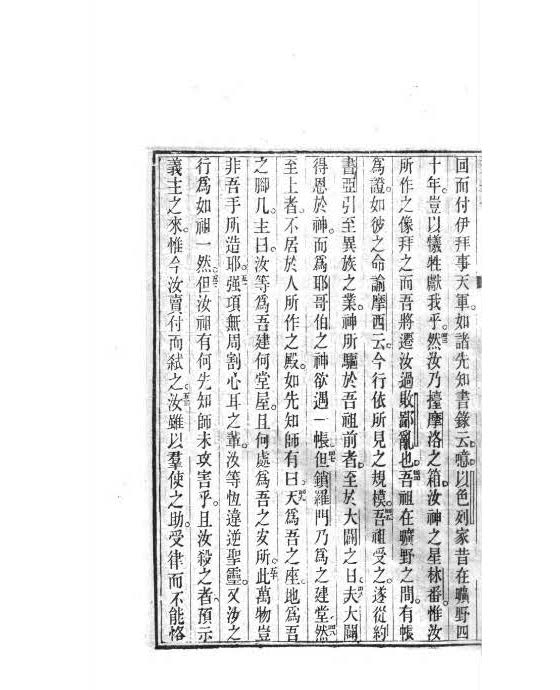 回而付伊拜事天軍。如諸先知書錄云。噫以色列家昔在曠野四
十年。豈以犧牲獻我乎。然汝乃擡摩洛之箱。汝神之星林番。惟汝
所作之像拜之。而吾將遷汝過敗鄙亂也。吾祖在曠野之間。有帳
為證。如彼之命諭摩西。云今行依所見之規模。吾祖受之。遂從約
書亞引至異族之業。神所驅於吾祖前者。至於大闢之日。夫大闢
得恩於神。而為耶哥伯之神欲遇一帳。但鎖羅門乃為之建堂。然
至上者不居於人所作之殿。如先知師有曰。天為吾之座。地為吾
之腳几。主曰。汝等為吾建何堂屋。且何處為吾之安所。此萬物豈
非吾手所造耶。强項無周割心耳之輩。汝等恆違逆聖靈。又汝之
行為如祖一然。但汝祖有何先知師未攻害乎。且汝殺之者。預示
義主之來。惟今汝賣付而弒之。汝雖以羣使之助。受律而不能恪